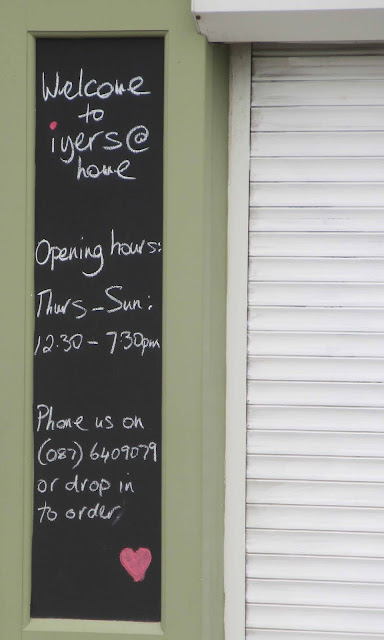 Welcome
to
iyers@
home
Opening hours:
Thurs-Sun:
12.30-7.30pm
Phone us on
(087) 6409079
or drop in
to order